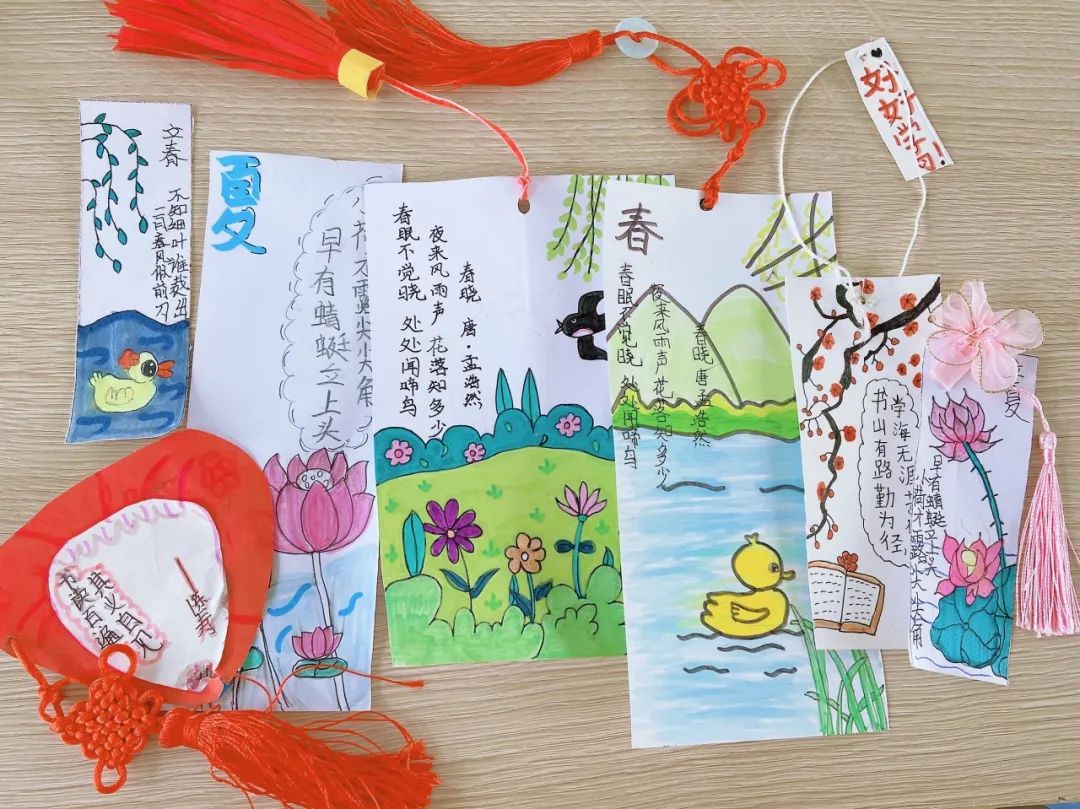 好好学习!
立春
不知细叶谁裁出
二月春风似剪刀
夏
小荷才露尖尖角
早有蜻蜓立上头
春晓 唐·孟浩然
春眠不觉晓 处处闻啼鸟
夜来风雨声 花落知多少
春
春晓 唐 孟浩然
春眠不觉晓 处处闻啼鸟
夜来风雨声 花落知多少
书山有路勤为径
学海无涯
夏
早有蜻蜓立上头
才露尖尖角
书读百遍
其义自见
陈寿